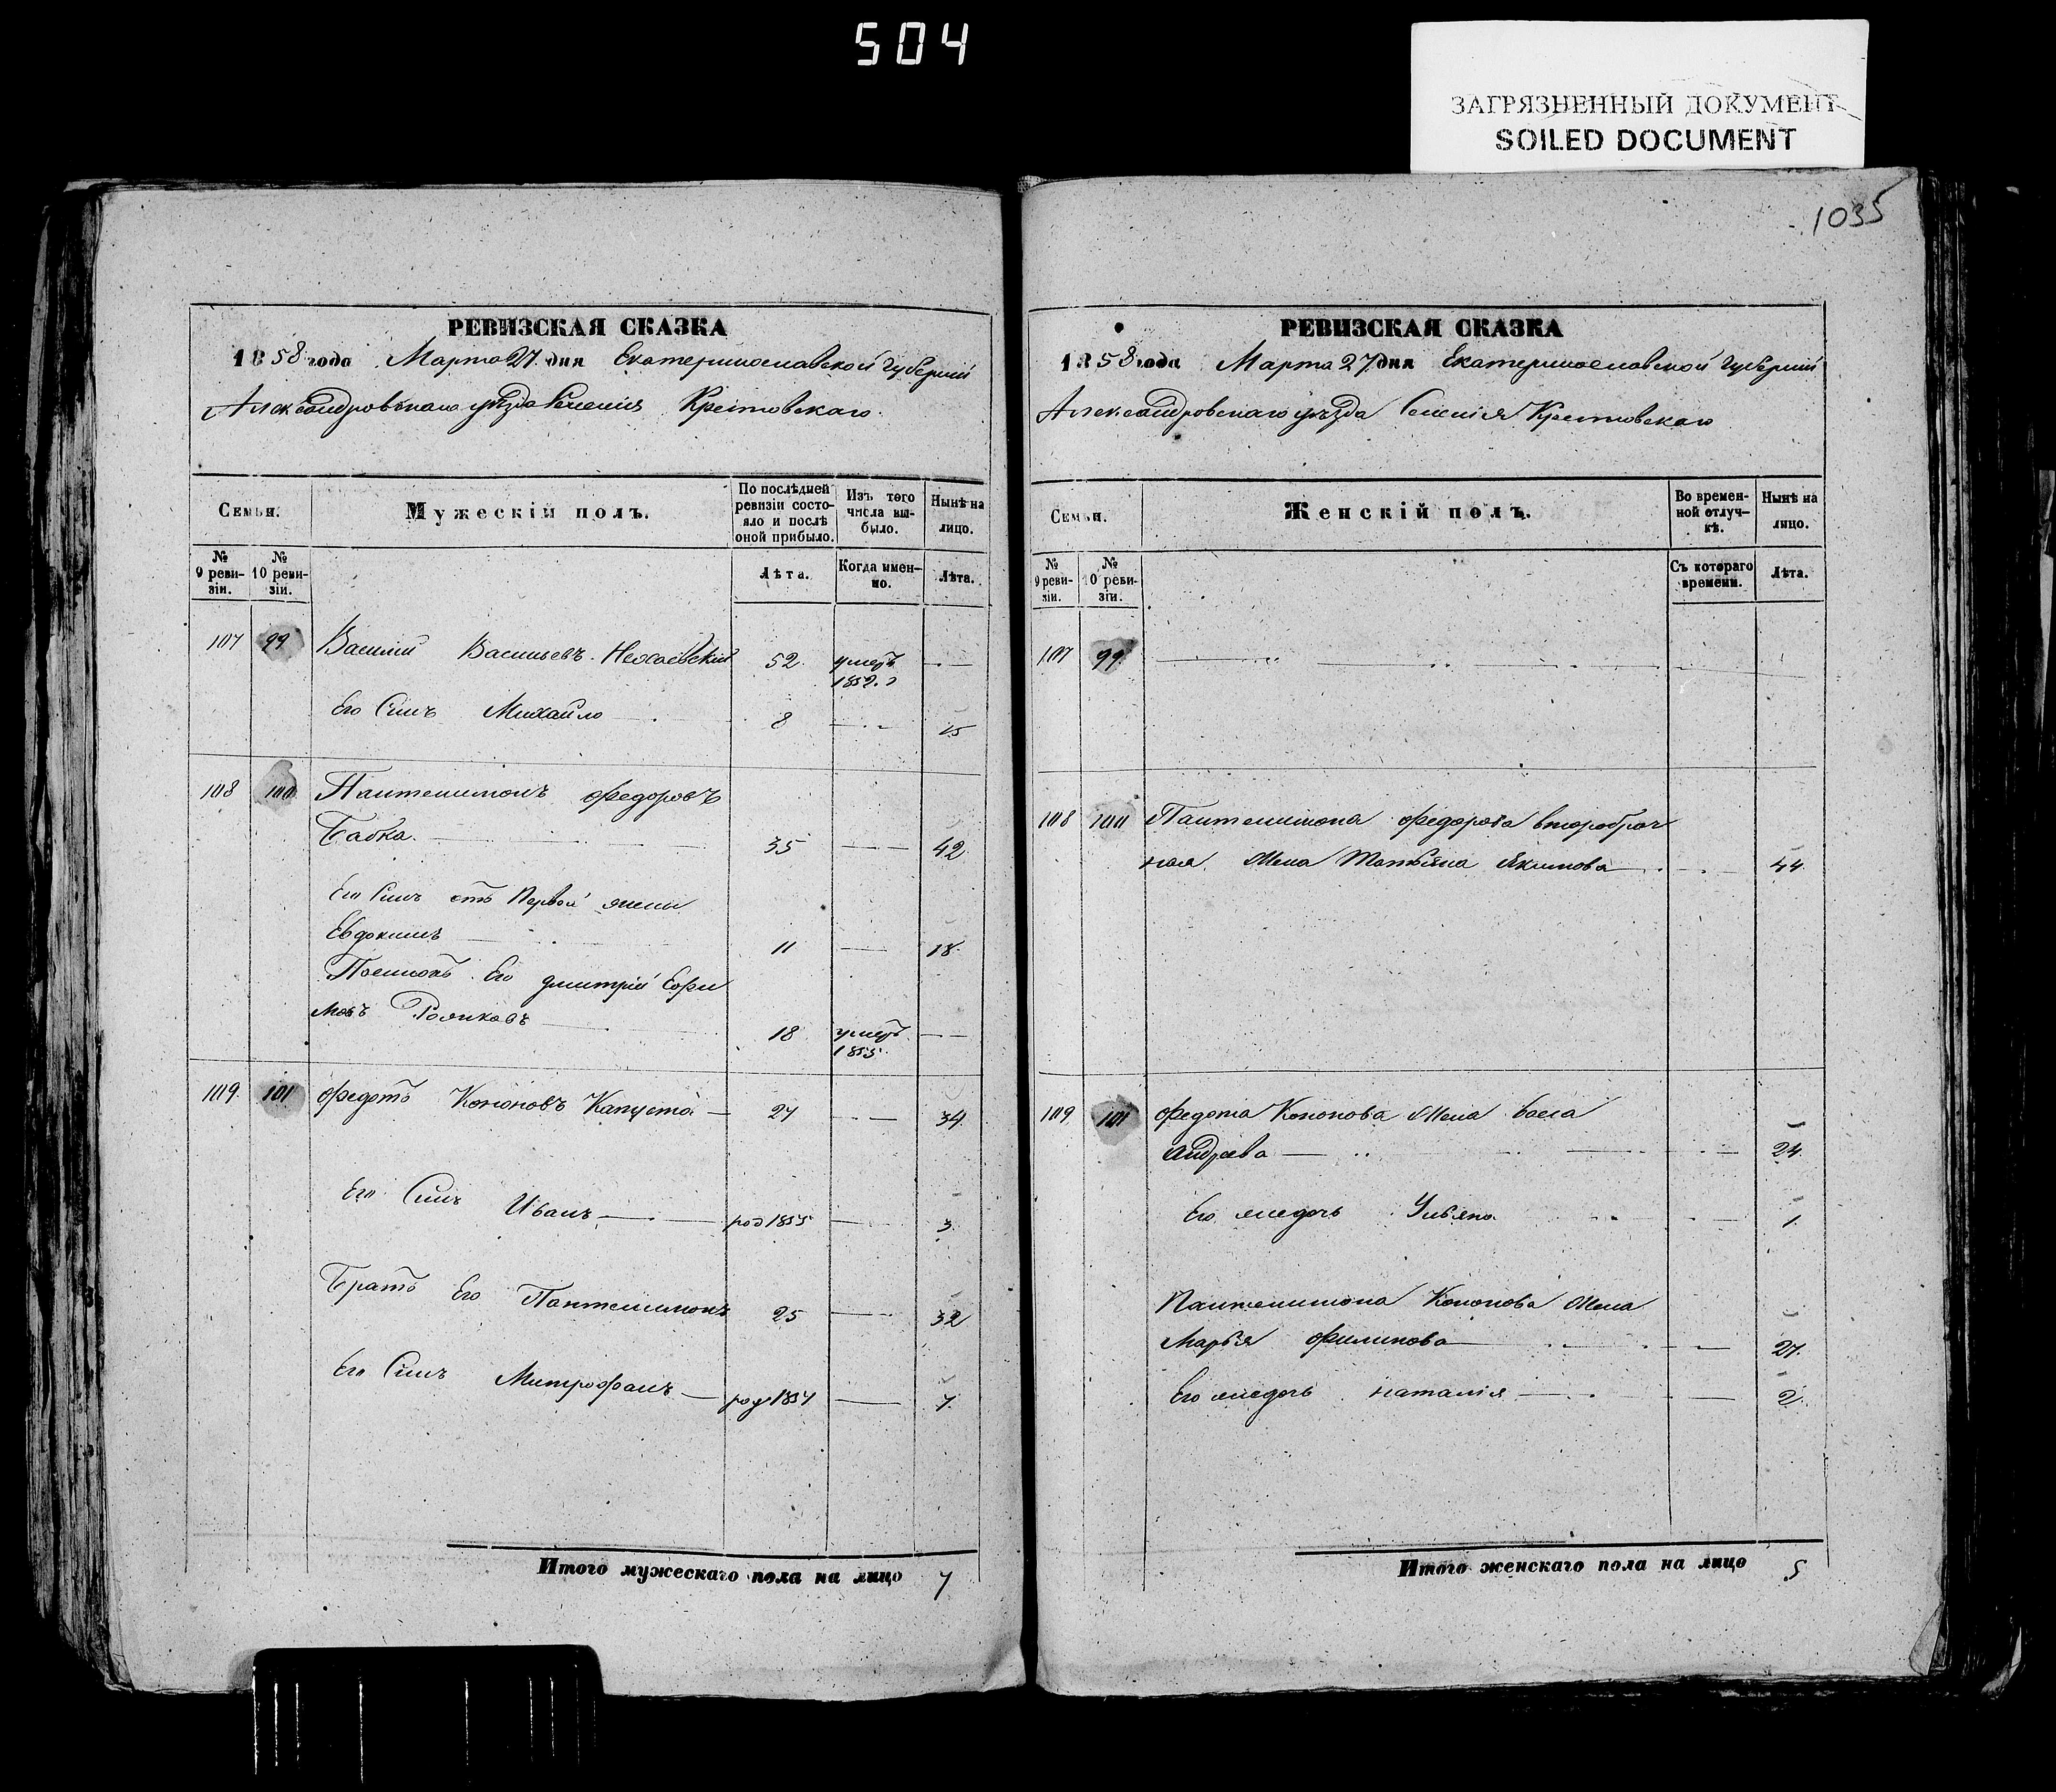 504
ЗАГРЯЗНЕННЫЙ ДОКУМЕНТ
SOILED DOCUMENT
РЕВИЗСКАЯ СКАЗКА
1858 года Марта 27 дня Екатеринославской Губерніи
Александровскаго уѣзда Селенія Крестовскаго
Семьи.
Мужескій полъ.
По послѣдней ревизіи состояло и послѣ оной прибыло.
Изъ того числа выбыло.
Нынѣ на лицо.
№ 9 ревизіи.
№ 10 ревизіи.
Лѣта.
Когда именно.
Лѣта.
107 99 Василій Васильевъ 52 умеръ 1852. г
Его Сынъ Михайло 8 15
108 100 Пантелимонъ Федоровъ
Бабка 35 42
Его Сынъ отъ Первой жены
Евдокимъ 11 18
Его Дмитрій Ефи
мовъ 18 умеръ 1855
109 101 Федотъ Кононовъ Капуста 27 34
Его Сынъ Иванъ род 1855 3
Братъ Его Пантелимонъ 25 32
Его Сынъ Митрофанъ род 1851 7
Итого мужескаго пола на лицо 7
1035
РЕВИЗСКАЯ СКАЗКА
1858 года Марта 27 дня Екатеринославской Губерніи
Александровскаго уѣзда Селенія Крестовскаго
Семьи.
Женскій полъ.
Во временной отлучкѣ.
Нынѣ на лицо.
№ 9 ревизіи.
№ 10 ревизіи.
Съ котораго времени.
Лѣта.
107 99
108 100 Пантелимона Федорова второбрач
ная Жена Татьяна Якимова 44
109 101 Федота Кононова Жена
Андреева 24
Его дочь Ульяна 1
Пантелимона Кононова Жена
Марья Филипова 27
Его дочь Наталія 2
Итого женскаго пола на лицо 5